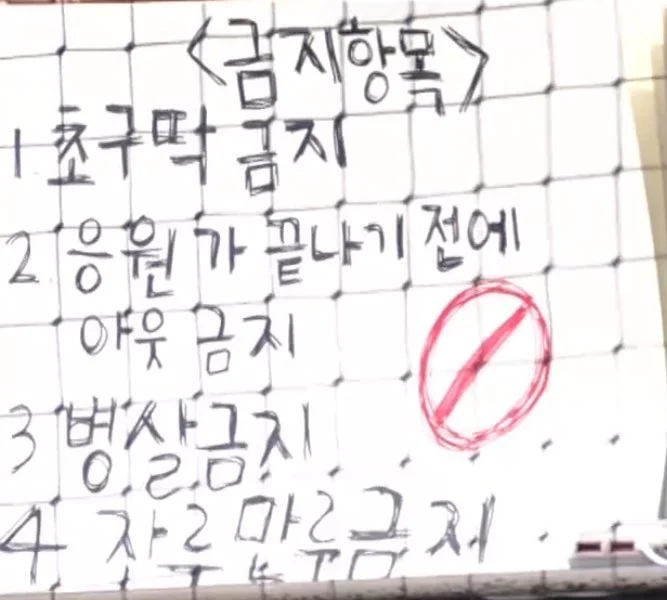 <금지항목>
1 초구딱 금지
2 응원가 끝나기 전에
아웃 금지
3 병살금지
4 잔루만루금지